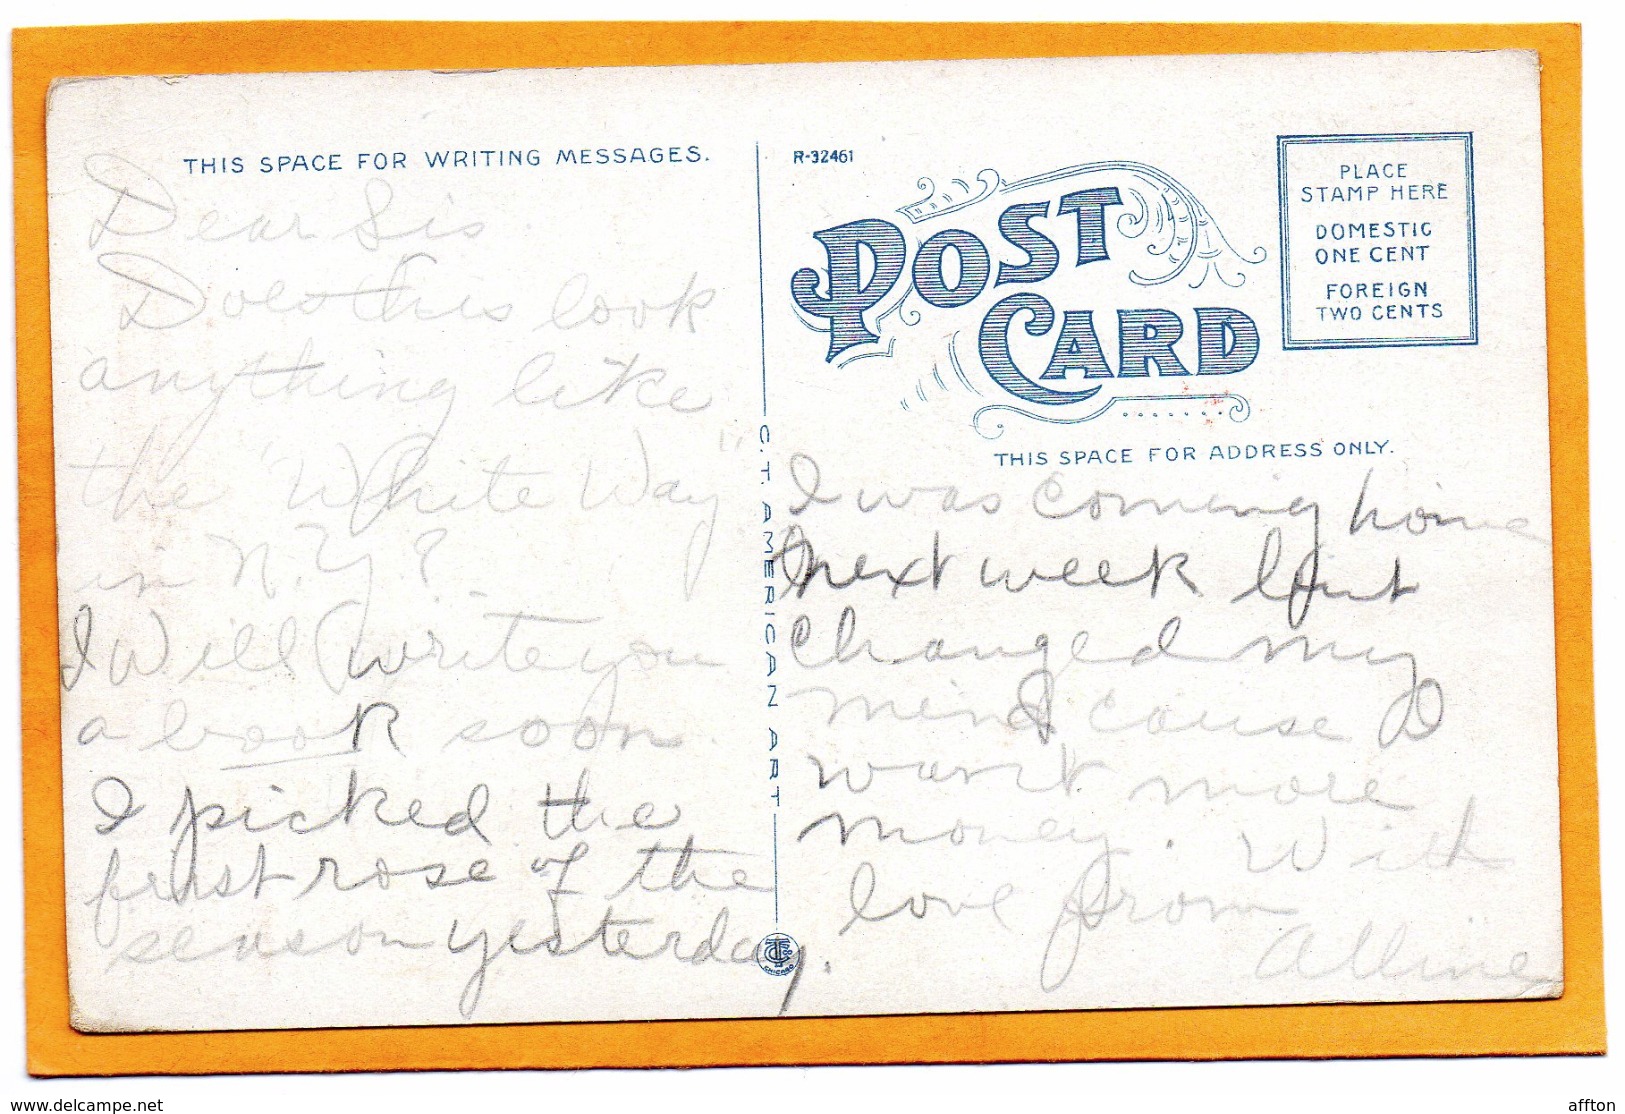 THIS SPACE FOR WRITING MESSAGES.
Dear Sis
Does this look
anything like
the "White Way"
in N.Y.?
I Will write you
a book soon.
I picked the
first rose of the
season yesterday.
C. T. AMERICAN ART
CTCo
CHICAGO
R-32461
POST
CARD
PLACE
STAMP HERE
DOMESTIC
ONE CENT
FOREIGN
TWO CENTS
THIS SPACE FOR ADDRESS ONLY.
I was coming home
next week but
changed my
mind cause I
want more
money. With
love from
Alline
www.delcampe.net
affton